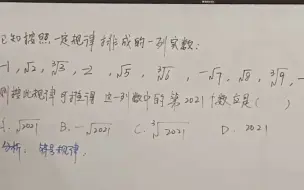 已知按照一定规律排成的一列实数:
-1, √2, ∛3, -2, √5, ∛6, -√7, √8, ∛9, -
则按此规律可推得这一列数中的第2021个数应是( )
A. √2021 B. -√2021 C. ∛2021 D. 2021
分析: 符号规律,